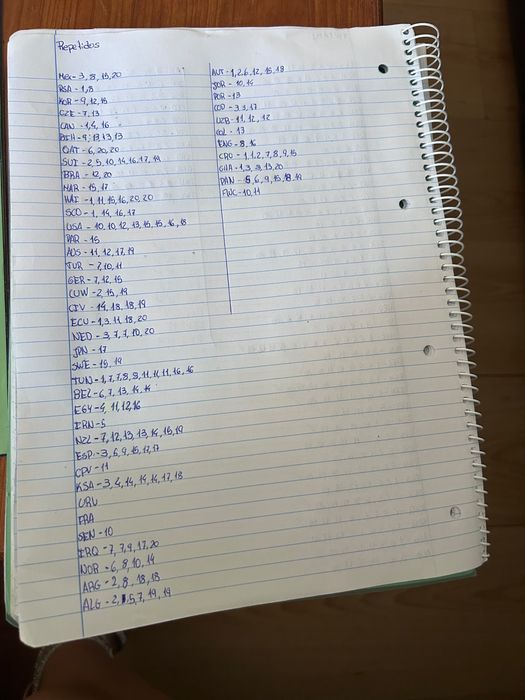 Repetidos
Mex - 3, 8, 15, 20
RSA - 1, 8
KOR - 9, 12, 15
CZE - 7, 13
CAN - 1, 4, 16
BIH - 9, 13, 13, 13
QAT - 6, 20, 20
SUI - 2, 5, 10, 14, 16, 17, 19
BRA - 12, 20
MAR - 15, 17
HAI - 1, 11, 15, 16, 20, 20
SCO - 1, 14, 16, 17
USA - 10, 10, 12, 13, 15, 15, 16, 18
PAR - 15
AUS - 11, 12, 17, 19
TUR - 7, 10, 11
GER - 7, 12, 15
CUW - 2, 15, 19
CIV - 14, 18, 18, 19
ECU - 1, 3, 11, 18, 20
NED - 3, 7, 7, 10, 20
JPN - 17
SWE - 15, 19
TUN - 1, 7, 7, 8, 8, 11, 11, 11, 16, 16
BEL - 6, 7, 13, 14, 14
EGY - 4, 11, 12, 16
IRN - 5
NZL - 7, 12, 13, 13, 14, 15, 19
ESP - 3, 6, 9, 15, 17, 17
CPV - 11
KSA - 3, 4, 14, 14, 14, 17, 18
URU
FRA
SEN - 10
IRQ - 7, 7, 9, 17, 20
NOR - 6, 8, 10, 14
ARG - 2, 8, 18, 18
ALG - 2, 5, 7, 19, 19
AUT - 1, 2, 6, 12, 15, 18
JOR - 10, 14
POR - 13
COD - 3, 3, 17
UZB - 11, 12, 12
COL - 13
ENG - 8, 16
CRO - 1, 1, 2, 7, 8, 9, 15
GHA - 1, 3, 3, 13, 20
PAN - 5, 6, 9, 15, 18, 19
FWC - 10, 11